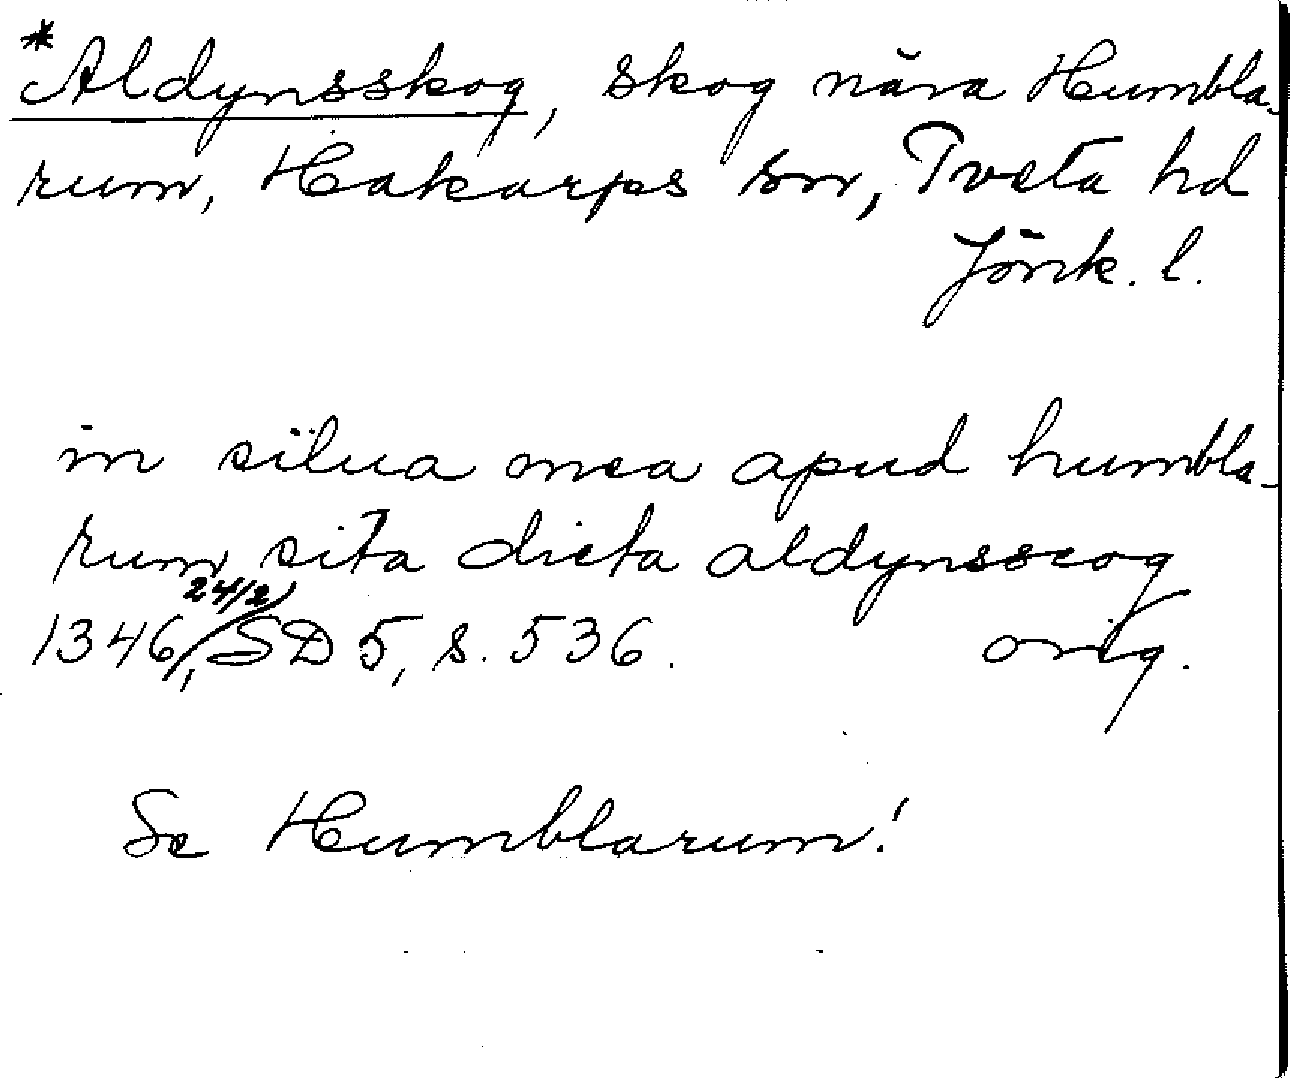 *Aldynsskog, skog nära Humbla-
rum, Hakarps sn, Tveta hd
Jönk. l.
in silua mea apud humbla-
rum sita dicta aldynsscog
1346 24/2, SD 5, s. 536. orig.
Se Humblarum!